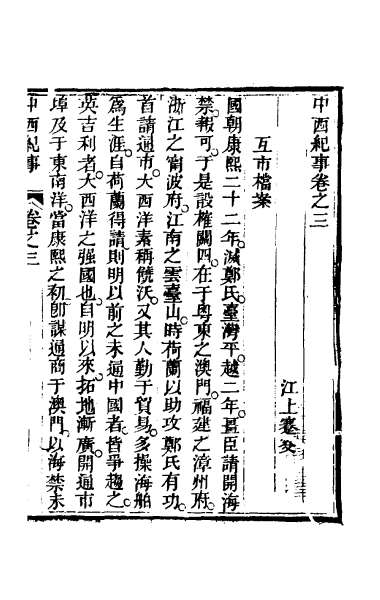 中西紀事卷之三
江上蹇叟
互市檔案
國朝康熙二十二年。滅鄭氏。臺灣平。越二年。疆臣請開海
禁。報可。于是設榷關四。在于粵東之澳門。福建之漳州府。
浙江之甯波府。江南之雲臺山。時荷蘭以助攻鄭氏有功。
首請通市。大西洋素稱饒沃。又其人勤于貿易。多操海舶
爲生涯。自荷蘭得請。則明以前之未通中國者。皆爭趨之。
英吉利者。大西洋之强國也。自明以來。拓地漸廣。開通市
埠。及于東南洋。當康熙之初。卽謀通商于澳門。以海禁未
中西紀事
卷之三